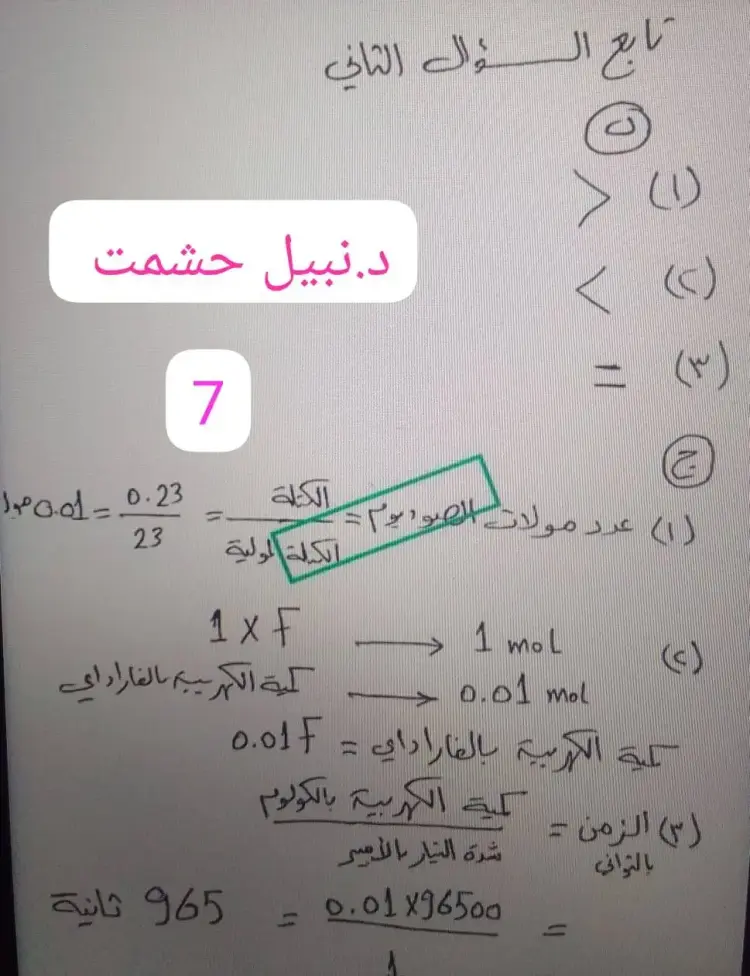 تابع السؤال الثاني
ب
(١) >
د.نبيل حشمت
(٢) <
(٣) =
7
ج
(١) عدد مولات الصوديوم = الكتلة / الكتلة المولية = 0.23 / 23 = 0.01 مول
(٢) 1 mol ⟶ 1 x F
0.01 mol ⟶ كمية الكهربية بالفاراداي
كمية الكهربية بالفاراداي = 0.01 F
(٣) الزمن بالثواني = كمية الكهربية بالكولوم / شدة التيار بالأمبير
= 0.01x96500 / 1 = 965 ثانية